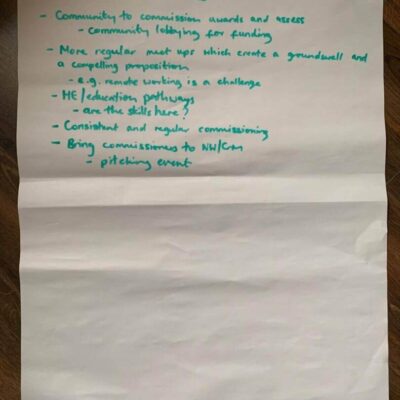 - Community to commission awards and assess
- community lobbying for funding
- More regular meet ups which create a groundswell and
a compelling proposition
- e.g. remote working is a challenge
- HE/education pathways
- are the skills here?
- Consistent and regular commissioning
- Bring commissioners to NW/GM
- pitching event